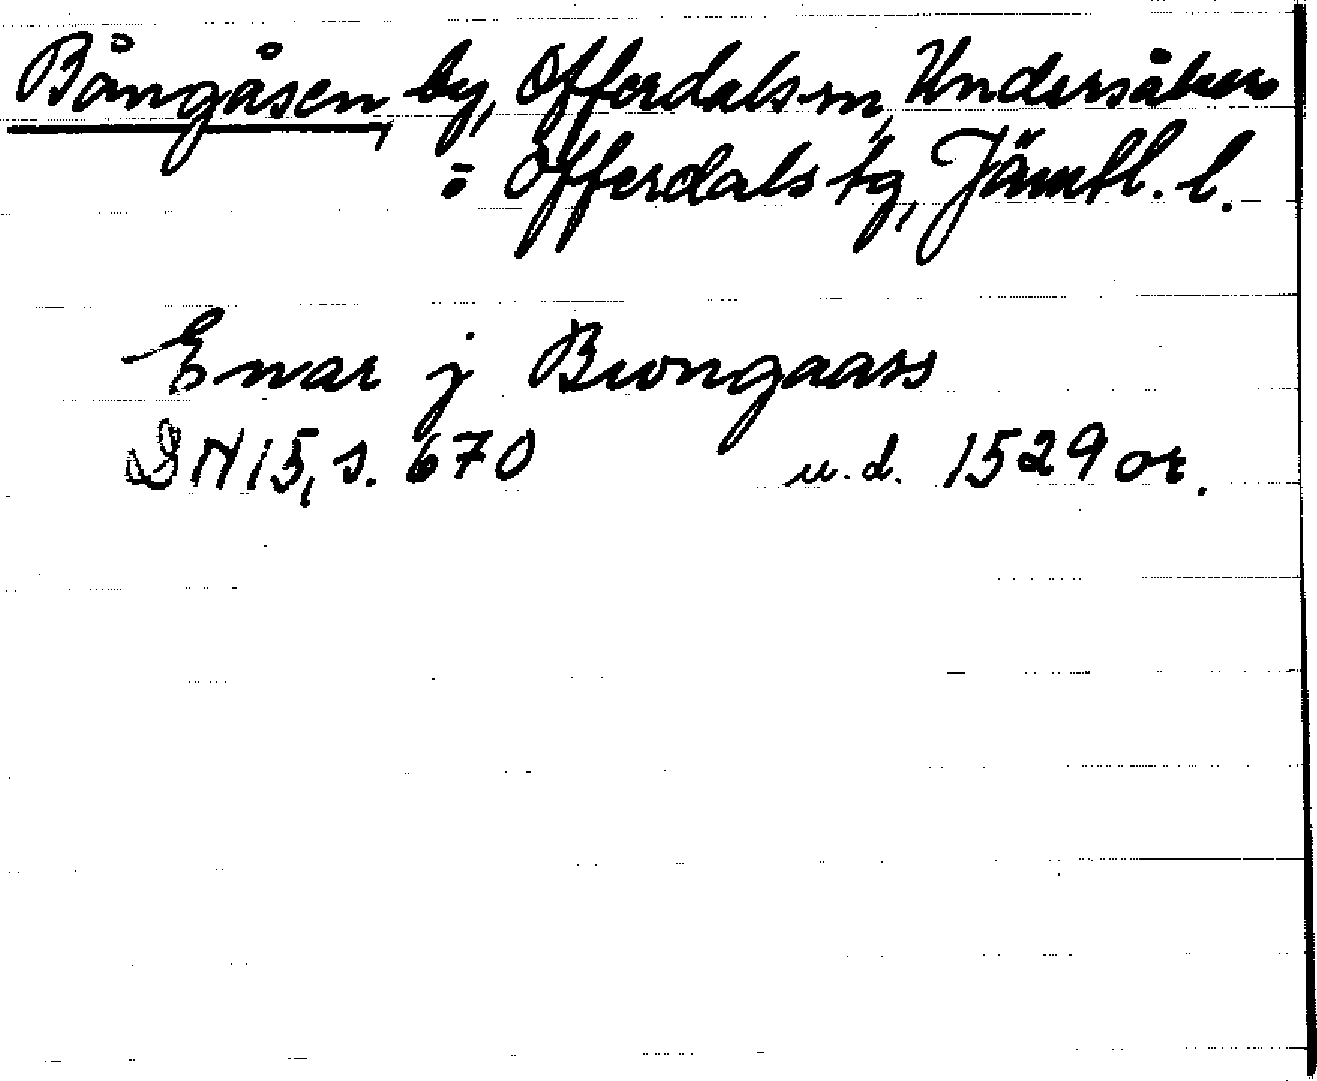 Bångåsen, by, Offerdals sn, Undersåkers
o Offerdals tg, Jämtl. l.
Enar j Brongaass
DN 15, s. 670 u. d. 1529 or.